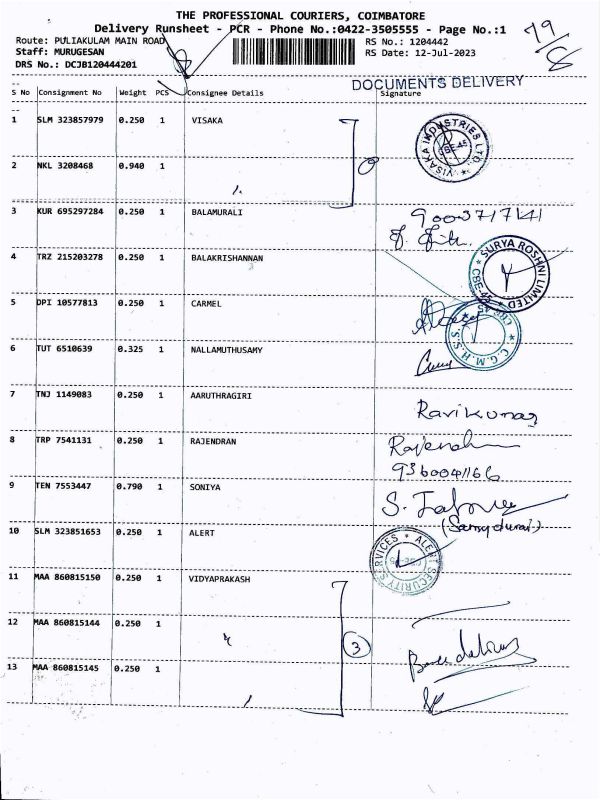 THE PROFESSIONAL COURIERS, COIMBATORE
Delivery Runsheet - PCR - Phone No.:0422-3505555 - Page No.:1
79/8
Route: PULIAKULAM MAIN ROAD
RS No.: 1204442
Staff: MURUGESAN
RS Date: 12-Jul-2023
DRS No.: DCJB120444201
DOCUMENTS DELIVERY
S No Consignment No Weight PCS Consignee Details Signature
1 SLM 323857979 0.250 1 VISAKA
VISAKA INDUSTRIES LTD.
2 NKL 3208468 0.940 1
3 KUR 695297284 0.250 1 BALAMURALI
9003717141
4 TRZ 215203278 0.250 1 BALAKRISHNAN
SURYA ROSHNI LIMITED
5 DPI 10577813 0.250 1 CARMEL
C.G.M.H.S.S.
6 TUT 6510639 0.325 1 NALLAMUTHUSAMY
7 TNJ 1149083 0.250 1 AARUTHRAGIRI
Ravikumar
8 TRP 7541131 0.250 1 RAJENDRAN
Rajendran
9360041166
9 TEN 7553447 0.790 1 SONIYA
10 SLM 323851653 0.250 1 ALERT
ALERT SECURITY SERVICES
11 MAA 860815150 0.250 1 VIDYAPRAKASH
12 MAA 860815144 0.250 1
3
13 MAA 860815145 0.250 1